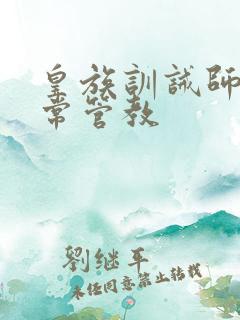 皇族訓誡師
常管教
劉继平
未经同意禁止转载